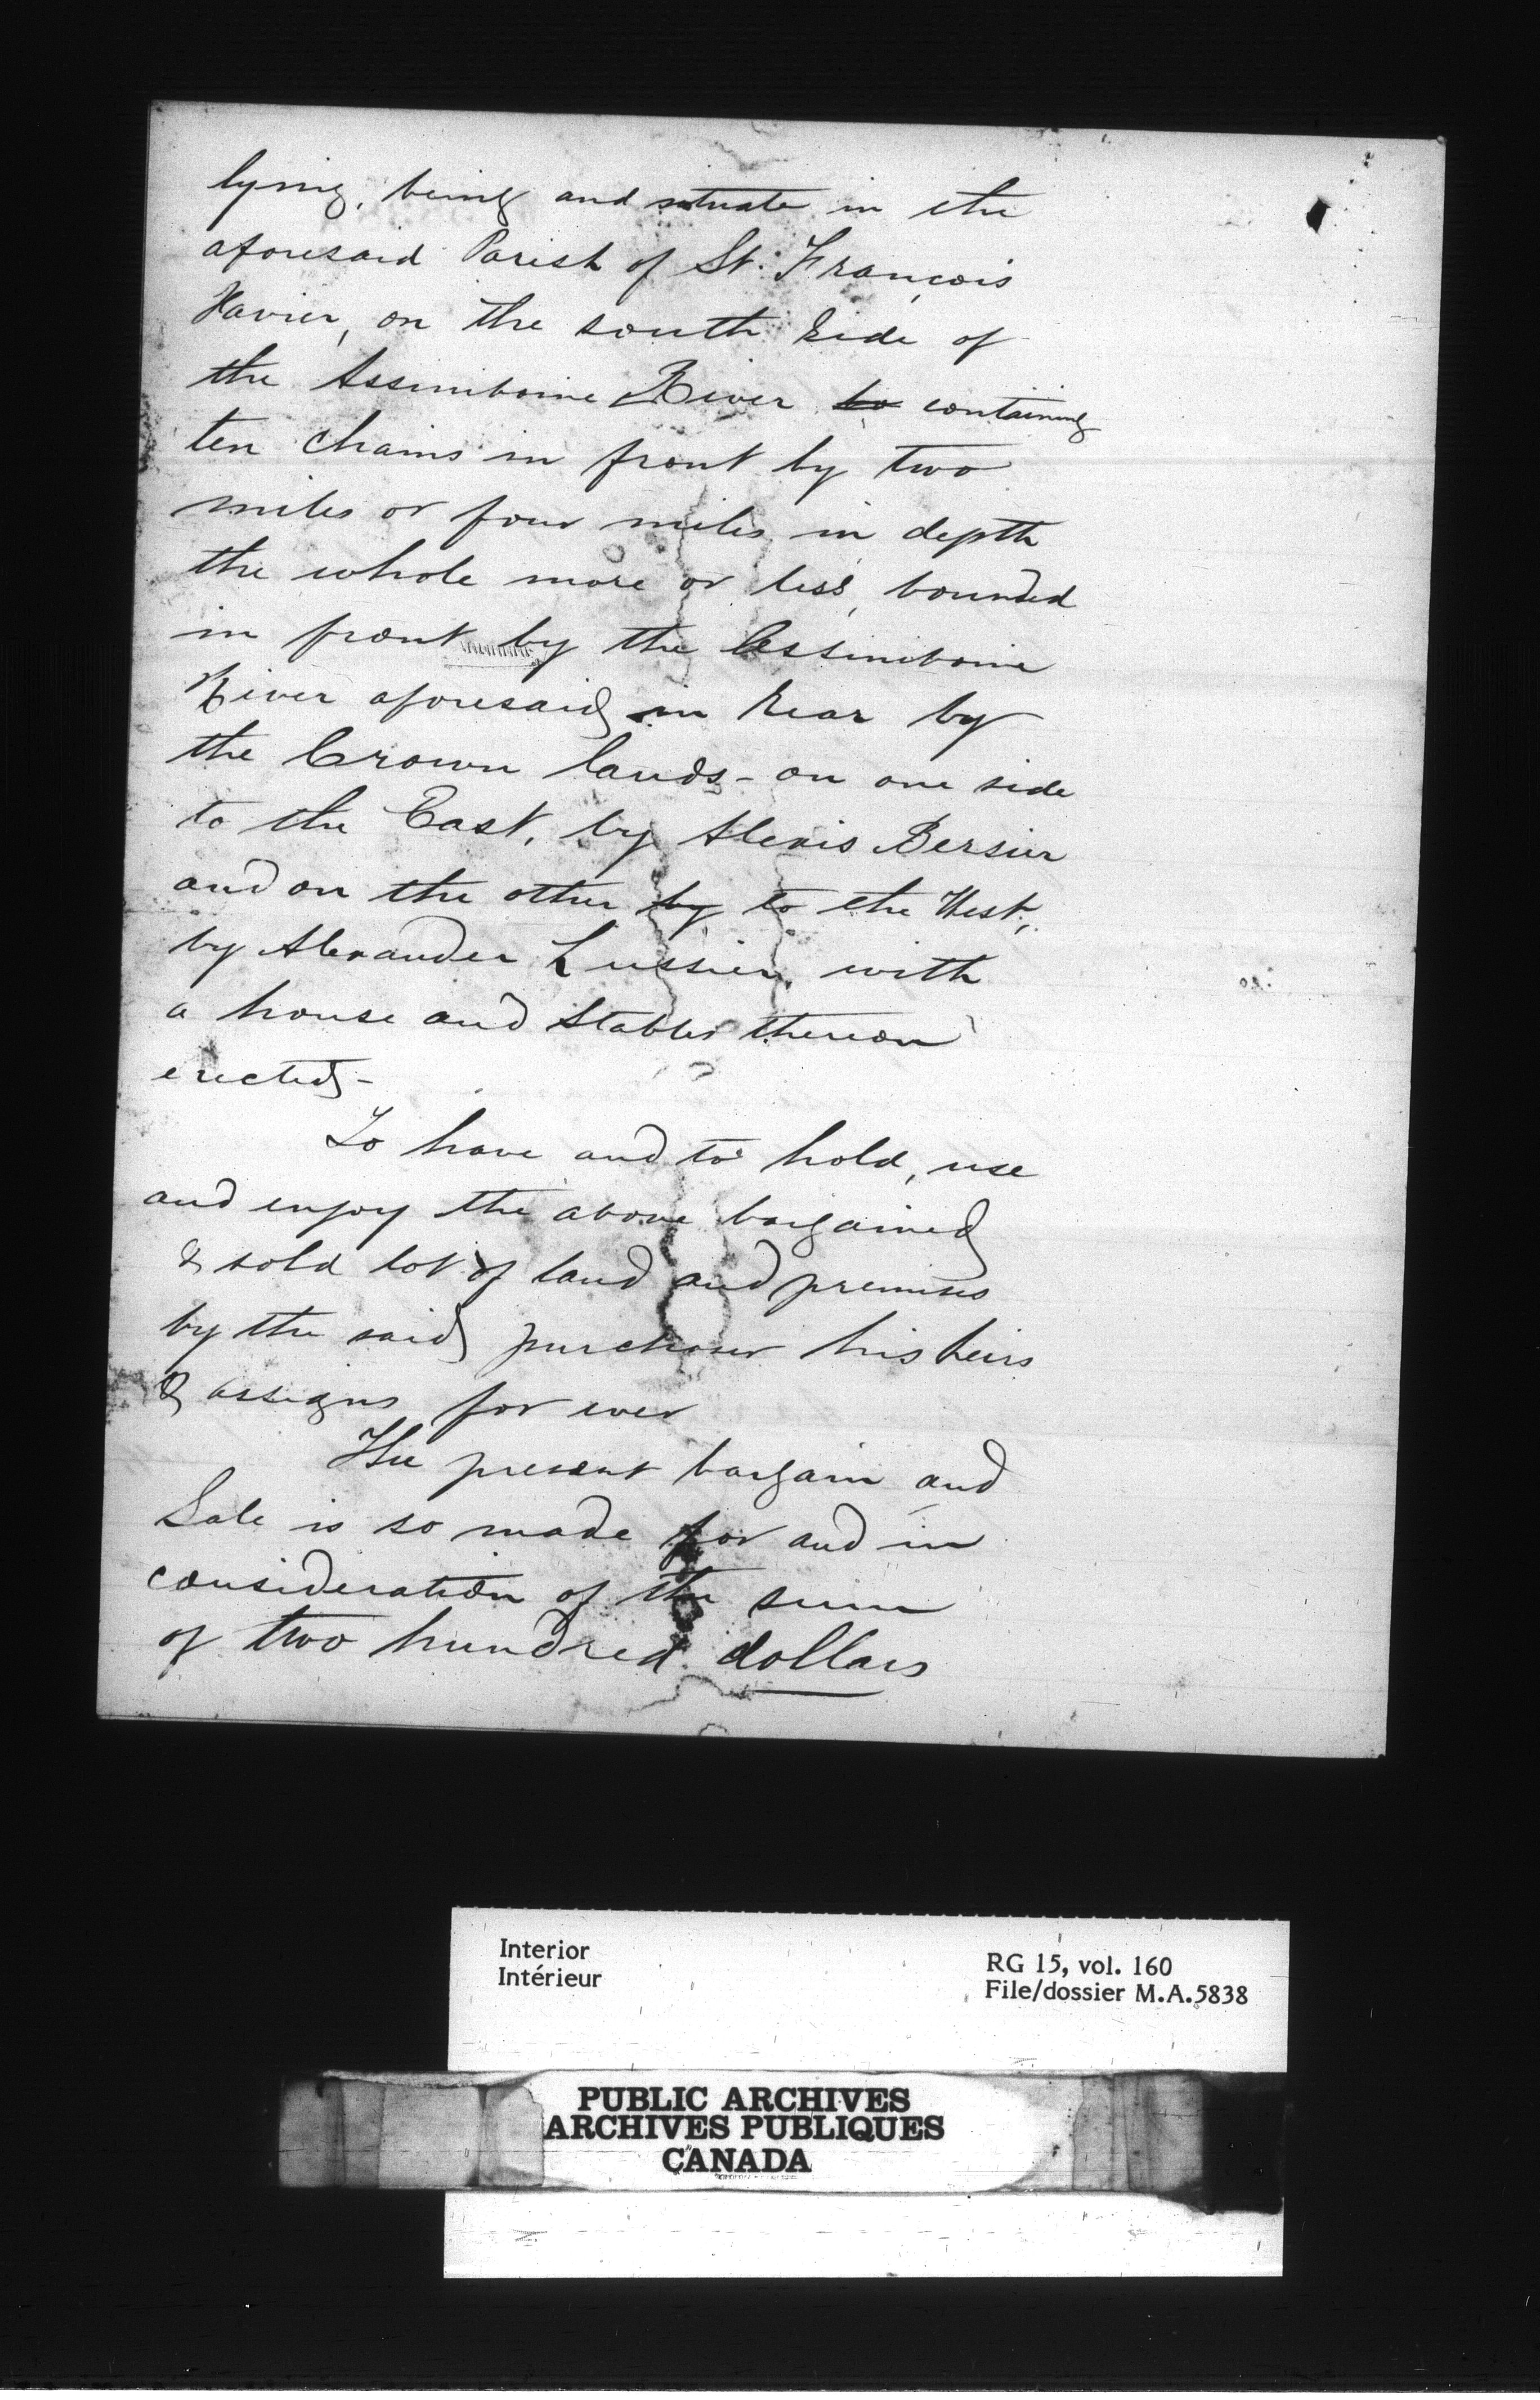 lying, being and situate in the
aforesaid Parish of St. François
Xavier, on the south side of
the Assiniboine River to containing
ten chains in front by two
miles or four miles in depth
the whole more or less, bounded
in front by the Assiniboine
River aforesaid in rear by
the Crown lands - on one side
to the East, by Alexis Bersier
and on the other by to the West,
by Alexander Lussier, with
a house and stables thereon
erected -
To have and to hold, use
and enjoy the above bargained
& sold lot of land and premises
by the said purchaser his heirs
& assigns for ever
The present bargain and
Sale is so made for and in
consideration of the sum
of two hundred dollars
Interior
Intérieur
RG 15, vol. 160
File/dossier M.A.5838
PUBLIC ARCHIVES
ARCHIVES PUBLIQUES
CANADA